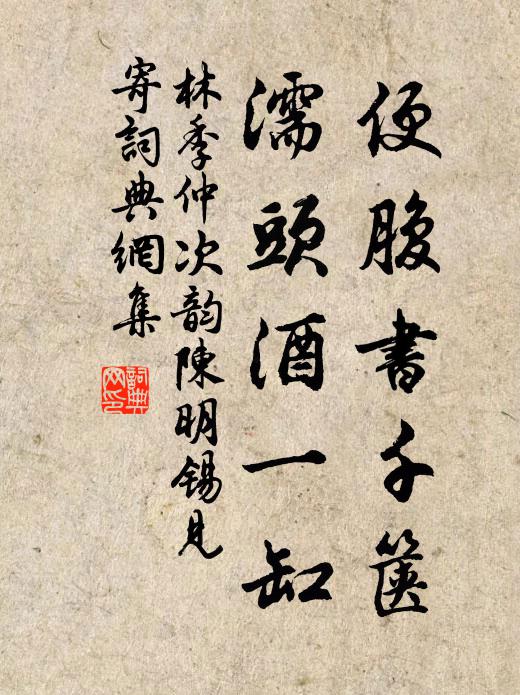 便腹書千篋
濡頭酒一缸
林季仲次韵陳明錫見
寄詞典網集
詞典网印